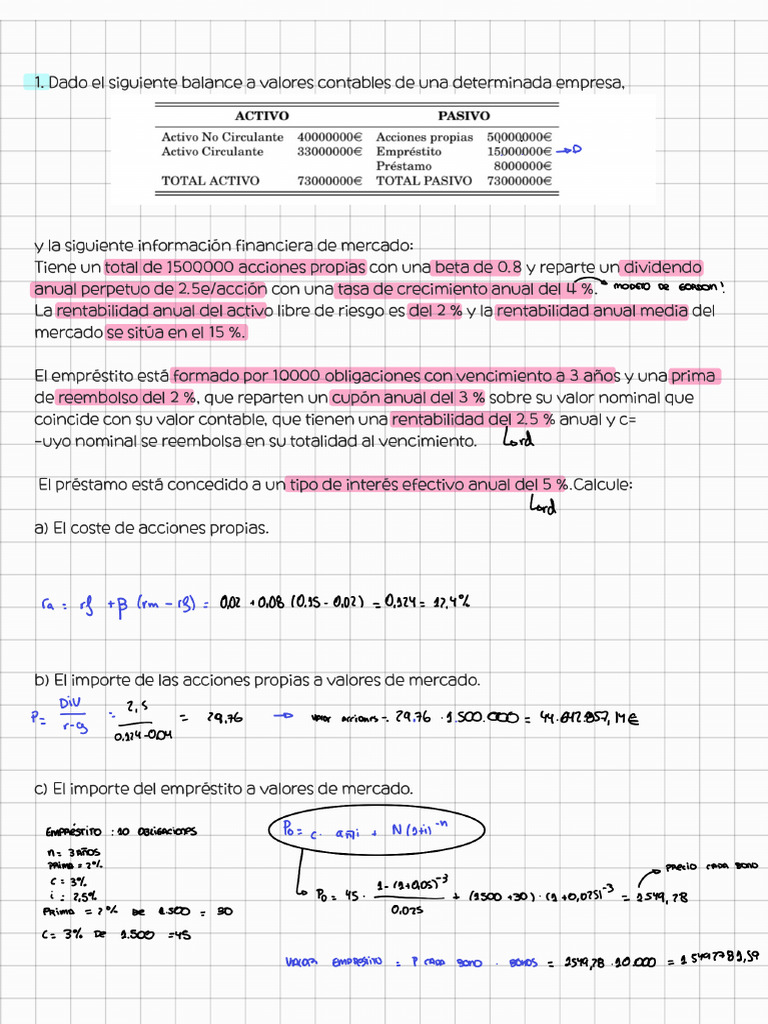 1. Dado el siguiente balance a valores contables de una determinada empresa,
ACTIVO PASIVO
Activo No Circulante 40000000€ Acciones propias 50000000€
Activo Circulante 33000000€ Empréstito 15000000€ → D
Préstamo 8000000€
TOTAL ACTIVO 73000000€ TOTAL PASIVO 73000000€
y la siguiente información financiera de mercado:
Tiene un total de 1500000 acciones propias con una beta de 0.8 y reparte un dividendo
anual perpetuo de 2.5e/acción con una tasa de crecimiento anual del 4 %. MODELO DE GORDON!
La rentabilidad anual del activo libre de riesgo es del 2 % y la rentabilidad anual media del
mercado se sitúa en el 15 %.
El empréstito está formado por 10000 obligaciones con vencimiento a 3 años y una prima
de reembolso del 2 %, que reparten un cupón anual del 3 % sobre su valor nominal que
coincide con su valor contable, que tienen una rentabilidad del 2.5 % anual y c=
-uyo nominal se reembolsa en su totalidad al vencimiento.
El préstamo está concedido a un tipo de interés efectivo anual del 5 %.Calcule:
a) El coste de acciones propias.
ra = rf + β (rm - rf) = 0,02 + 0.08 (0.15 - 0.02) = 0,124 = 12,4%
b) El importe de las acciones propias a valores de mercado.
P = DIV / r-g = 2,5 / 0.124-0,04 = 29,76 → valor acciones = 29.76 · 1.500.000 = 44.642.857,14€
c) El importe del empréstito a valores de mercado.
EMPRÉSTITO : 10 OBLIGACIONES
P0 = c · an¬i + N (1+i)^-n
n = 3 AÑOS
PRIMA = 2%
C = 3%
i = 2,5%
PRIMA = 2% DE 1.500 = 30
C = 3% DE 1.500 = 45
→ PRECIO CADA BONO
P0 = 45 · 1-(1+0,05)^-3 / 0.025 + (1500 + 30) · (1 + 0,025)^-3 = 1549,78
VALOR EMPRÉSTITO = P CADA BONO · BONOS = 1549,78 · 10.000 = 15497781,59